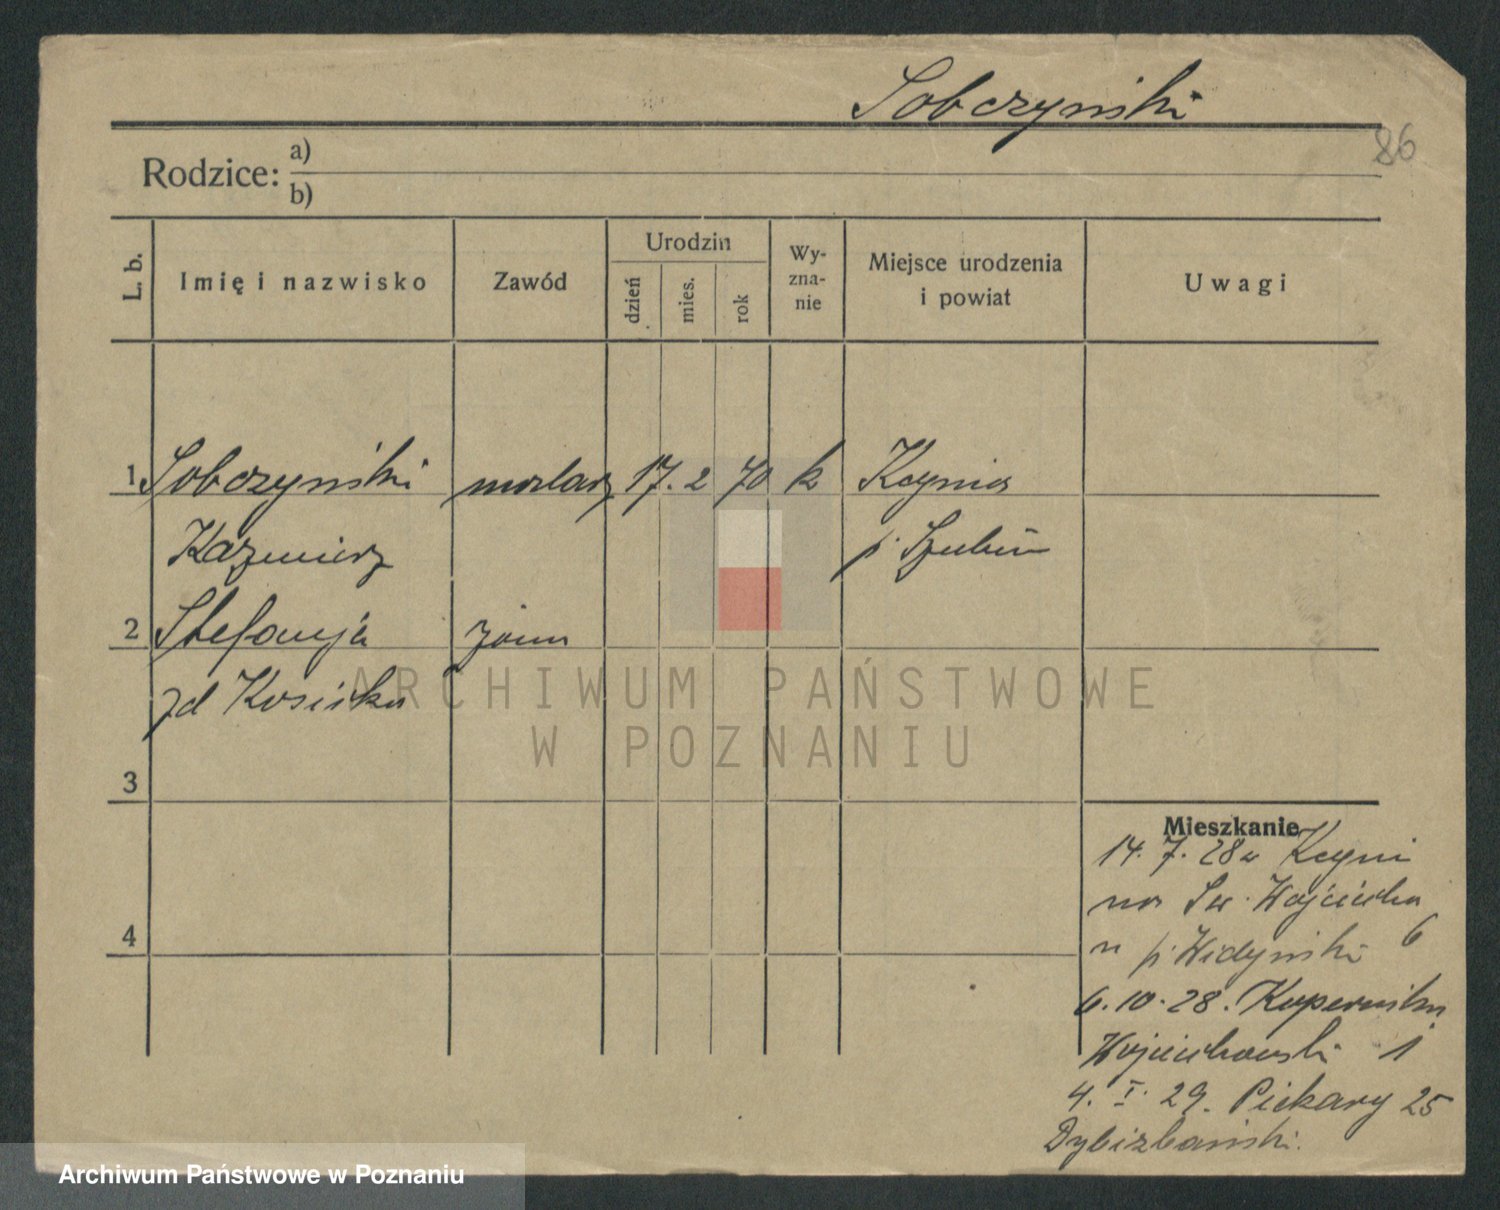 Sobczyński
86
Rodzice: a)
b)
L. b.
Imię i nazwisko
Zawód
Urodzin
dzień
mies.
rok
Wy-
zna-
nie
Miejsce urodzenia
i powiat
Uwagi
1 Sobczyński malarz 17. 2 70 k Kcynia
Kazimierz p. Szubin
2 Stefanja żona
zd Kosicka
3
4
Mieszkanie
14. 7. 28 z Kcyni
na Św. Wojciecha 6
u p.
6. 10. 28. Kopernika
Wojciechowski 1
4. I. 29. Piekary 25
Dybizbański.
ARCHIWUM PAŃSTWOWE
W POZNANIU
Archiwum Państwowe w Poznaniu